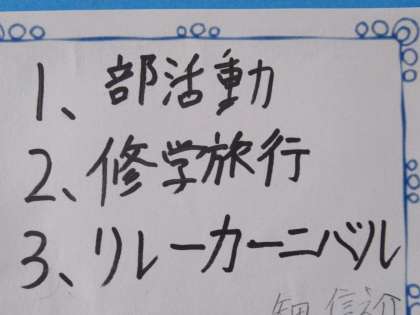 1、部活動
2、修学旅行
3、リレーカーニバル